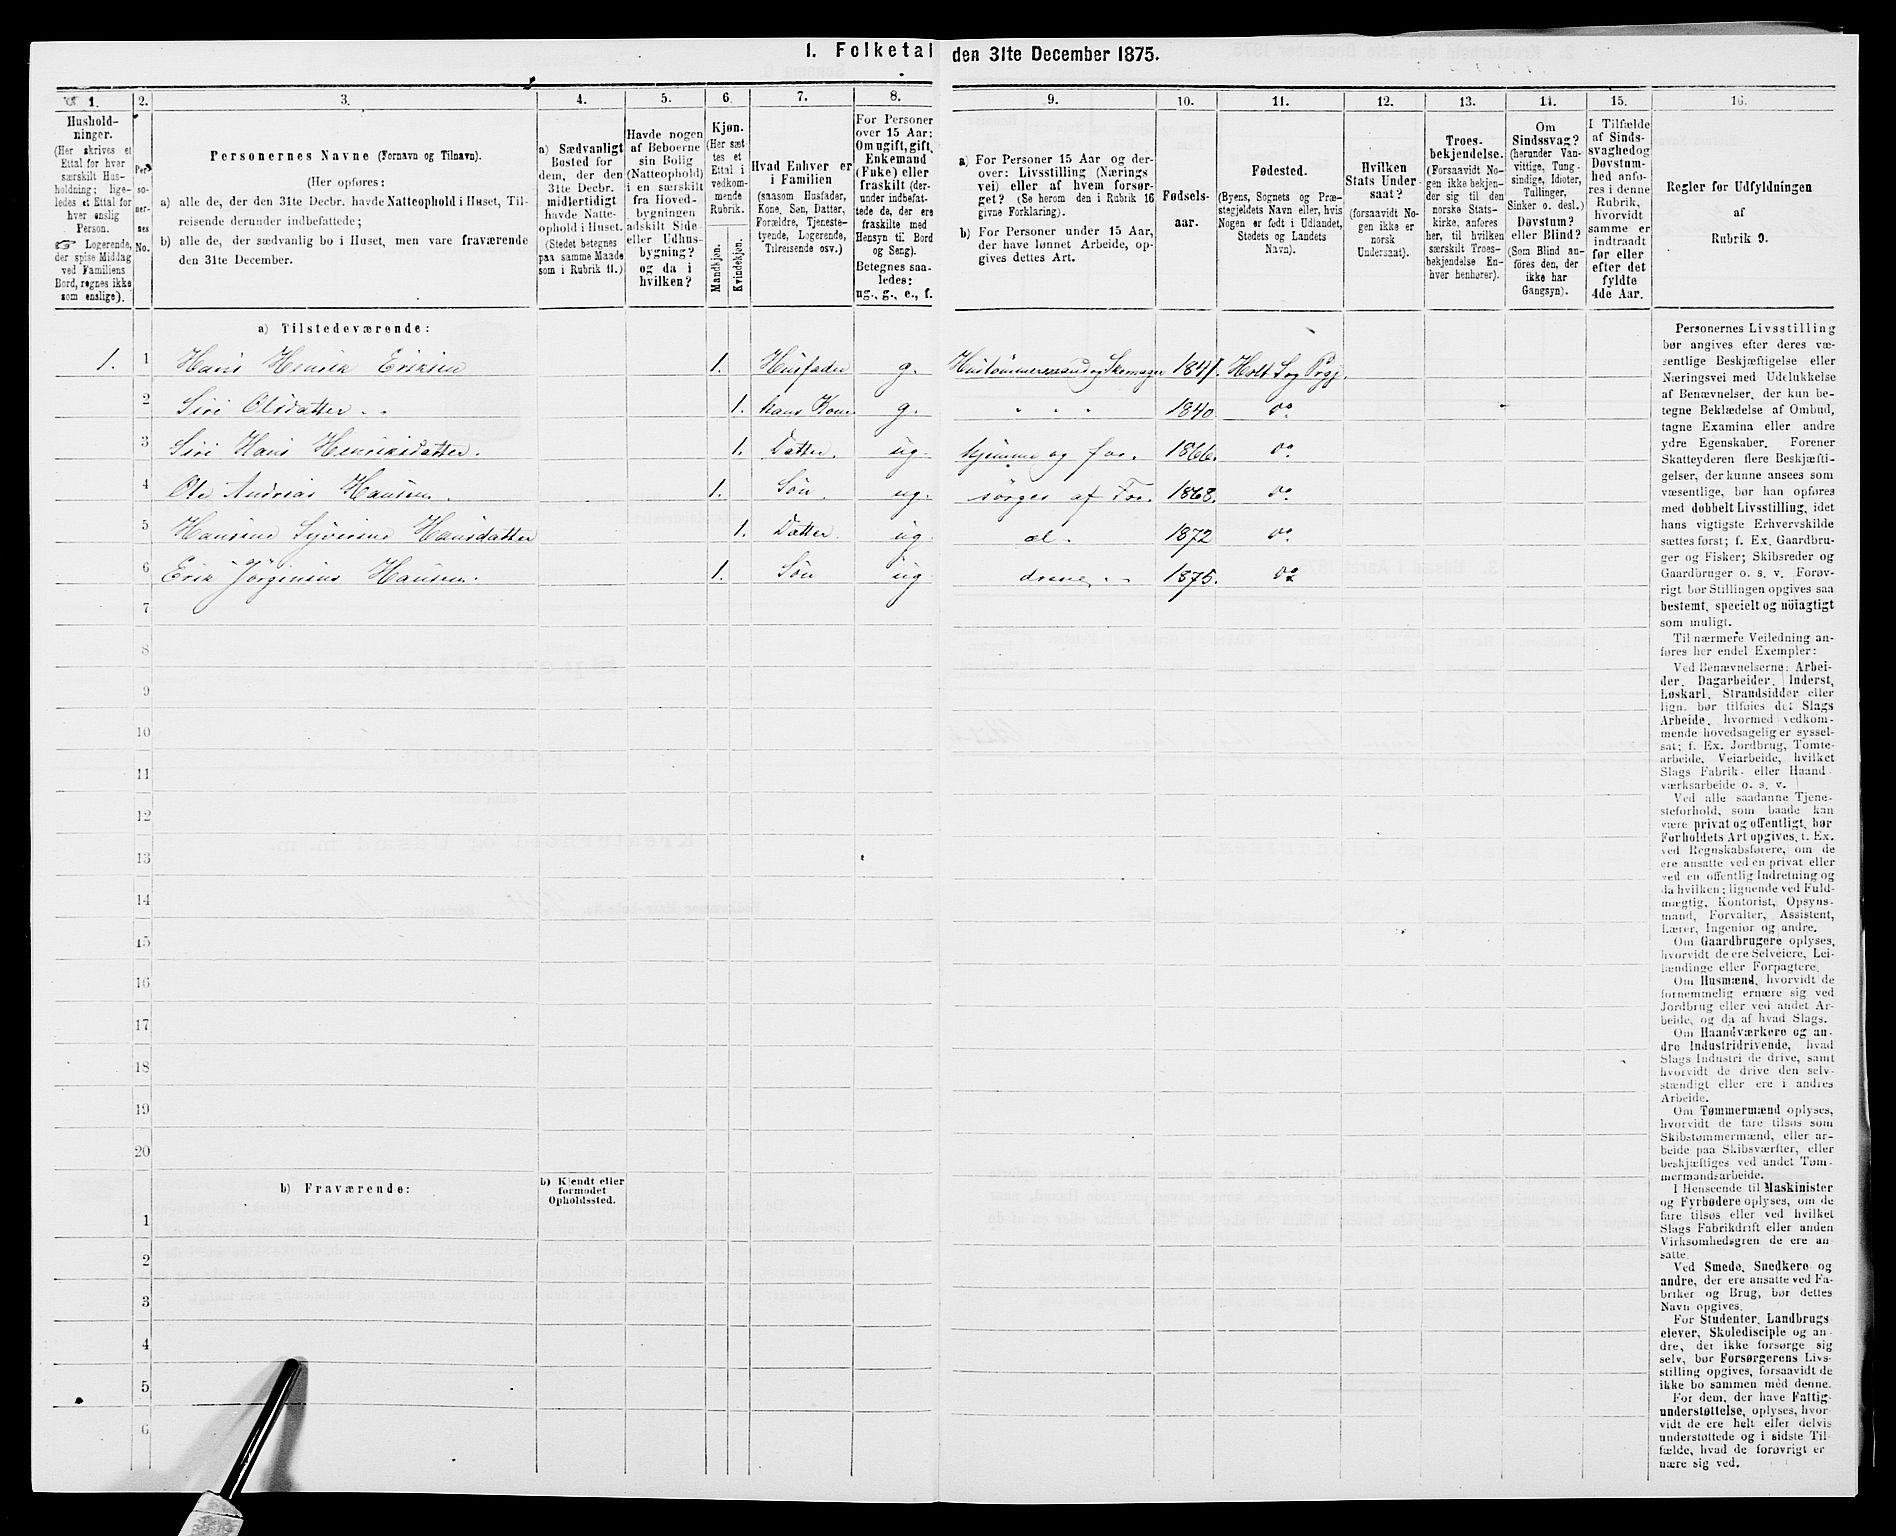 1. Folketal den 31te December 1875.
1. 2. 3. 4. 5. 6. 7. 8. 9. 10. 11. 12. 13. 14. 15. 16.
Hushold-
ninger.
(Her skrives et
Ettal for hver
særskilt Hus-
holdning; lige-
ledes et Ettal for
hver enslig
Person.
☞ Logerende,
der spise Middag
ved Familiens
Bord, regnes ikke
som enslige).
Per-
so-
ner-
nes
No.
Personernes Navne (Fornavn og Tilnavn).
(Her opføres:
a) alle de, der den 31te Decbr. havde Natteophold i Huset, Til-
reisende derunder indbefattede;
b) alle de, der sædvanlig bo i Huset, men vare fraværende
den 31te December.
a) Sædvanligt
Bosted for
dem, der den
31te Decbr.
midlertidigt
havde Natte-
ophold i Huset.
(Stedet betegnes
paa samme Maade
som i Rubrik 11.)
Havde nogen
af Beboerne
sin Bolig
(Natteophold)
i en særskilt
fra Hoved-
bygningen
adskilt Side-
eller Udhus-
bygning?
og da i
hvilken?
Kjøn.
(Her sæt-
tes et
Ettal i
vedkom-
mende
Rubrik.
Mandkjøn.
Kvindekjøn.
Hvad Enhver er
i Familien
(saasom Husfader,
Kone, Søn, Datter,
Forældre, Tjeneste-
tyende, Logerende,
Tilreisende osv.)
For Personer
over 15 Aar:
Om ugift, gift,
Enkemand
(Enke) eller
fraskilt (der-
under indbefat-
tede de, der ere
fraskilte med
Hensyn til Bord
og Seng).
Betegnes saa-
ledes:
ug., g., e., f.
a) For Personer 15 Aar og der-
over: Livsstilling (Nærings
vei) eller af hvem forsør-
get? (Se herom den i Rubrik 16
givne Forklaring).
b) For Personer under 15 Aar,
der have lønnet Arbeide, op-
gives dettes Art.
Fødsels-
aar.
Fødested.
(Byens, Sognets og Præ-
stegjeldets Navn eller, hvis
Nogen er født i Udlandet,
Stedets og Landets
Navn).
Hvilken
Stats Under-
saat?
(forsaavidt No-
gen ikke er
norsk
Undersaat).
Troes-
bekjendelse.
(Forsaavidt No-
gen ikke bekjen-
der sig til den
norske Stats-
kirke, anføres
her, til hvilken
særskilt Troes-
bekjendelse En-
hver henhører).
Om
Sindssvag?
(herunder Van-
vittige, Tung-
sindige, Idioter,
Tullinger,
Sinker o. desl.)
Døvstum?
eller Blind?
(Som Blind an-
føres den, der
ikke har
Gangsyn).
I Tilfælde
af Sinds-
svaghed og
Døvstum-
hed anfø-
res i denne
Rubrik,
hvorvidt
samme er
indtraadt
før eller
efter det
fyldte
4de Aar.
Regler for Udfyldningen
af
Rubrik 9.
a) Tilstedeværende:
1. 1 Hans Henrik Eriksen 1. Husfader g. Hustømmermand og Skomager 1841. Holt Sog Prgj.
2 Siri Olsdatter 1. hans Kone g. " " " 1840. do
3 Siri Hans Henriksdatter. 1. Datter. ug. hjemme og for. 1866. do
4 Ole Andreas Hansen. 1. Søn. ug. sørges af For. 1868. do
5 Hansine Syverine Hansdatter 1. Datter. ug. æl. 1872 do
6 Erik Jørginius Hansen. 1. Søn ug drene 1875. do
7
8
9
10
11
12
13
14
15
16
17
18
19
20
b) Fraværende:
b) Kjendt eller
formodet
Opholdssted.
1
2
3
4
5
6
Personernes Livsstilling
bør angives efter deres væ-
sentlige Beskjæftigelse eller
Næringsvei med Udelukkelse
af Benævnelser, der kun be-
tegne Beklædelse af Ombud,
tagne Examina eller andre
ydre Egenskaber. Forener
Skatteyderen flere Beskjæfti-
gelser, der kunne ansees som
væsentlige, bør han opføres
med dobbelt Livsstilling, idet
hans vigtigste Erhvervskilde
sættes først; f. Ex. Gaardbru-
ger og Fisker; Skibsreder og
Gaardbruger o. s. v. Forøv-
rigt bør Stillingen opgives saa
bestemt, specielt og nöiagtigt
som muligt.
Til nærmere Veiledning an-
føres her endel Exempler:
Ved Benævnelserne: Arbei-
der, Dagarbeider, Inderst,
Løskarl, Strandsidder eller
lign. bør tilføies det Slags
Arbeide, hvormed vedkom-
mende hovedsagelig er syssel-
sat; f. Ex. Jordbrug, Tomte-
arbeide, Veiarbeide, hvilket
Slags Fabrik- eller Haand-
værksarbeide o. s. v.
Ved alle saadanne Tjene-
steforhold, som baade kan
være privat og offentligt, bør
Forholdets Art opgives, t. Ex.
ved Regnskabsførere, om de
ere ansatte ved en privat eller
ved en offentlig Indretning og
da hvilken; lignende ved Fuld-
mægtig, Kontorist, Opsyns-
mand, Forvalter, Assistent,
Lærer, Ingeniør og andre.
Om Gaardbrugere oplyses,
hvorvidt de ere Selveiere, Lei-
lændinge eller Forpagtere.
Om Husmænd, hvorvidt de
fornemmelig ernære sig ved
Jordbrug eller ved andet Ar-
beide, og da af hvad Slags.
Om Haandværkere og an-
dre Industridrivende, hvad
Slags Industri de drive, samt
hvorvidt de drive den selv-
stændigt eller ere i andres
Arbeide.
Om Tømmermænd oplyses,
hvorvidt de fare tilsøs som
Skibstømmermænd, eller ar-
beide paa Skibsværfter, eller
beskjæftiges ved andet Tøm-
mermandsarbeide.
I Henseende til Maskinister
og Fyrbødere oplyses, om de
fare tilsøs eller ved hvilket
Slags Fabrikdrift eller anden
Virksomhedsgren de ere an-
satte.
Ved Smede, Snedkere og
andre, der ere ansatte ved Fa-
briker og Brug, bør dettes
Navn opgives.
For Studenter, Landbrugs
elever, Skoledisciple og an-
dre, det ikke forsørge sig
selv, bør Forsørgerens Livs-
stilling opgives, forsaavidt de
ikke bo sammen med denne.
For dem, der have Fattig-
understøttelse, oplyses, hvor-
vidt de ere helt eller delvis
understøttede og i sidste Til-
fælde, hvad de forøvrigt er-
nære sig ved.